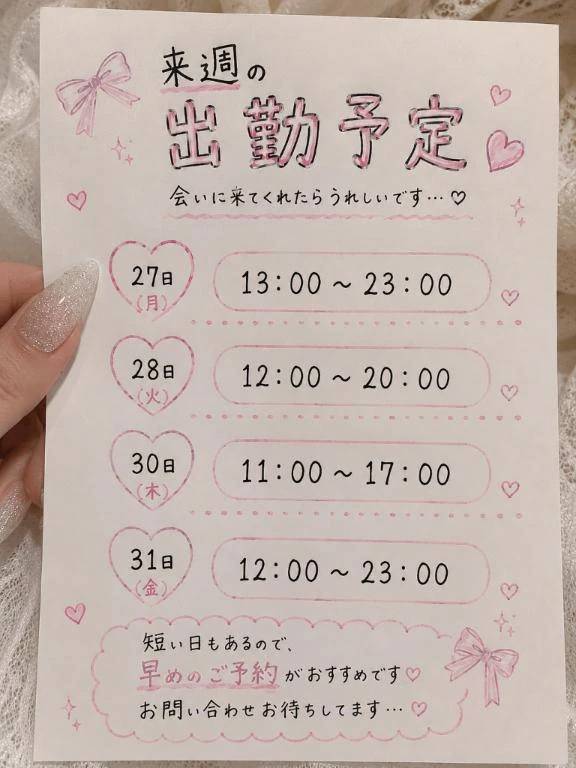 来週の
出勤予定
会いに来てくれたらうれしいです…♡
27日
(月)
13:00～23:00
28日
(火)
12:00～20:00
30日
(木)
11:00～17:00
31日
(金)
12:00～23:00
短い日もあるので、
早めのご予約がおすすめです♡
お問い合わせお待ちしてます…♡